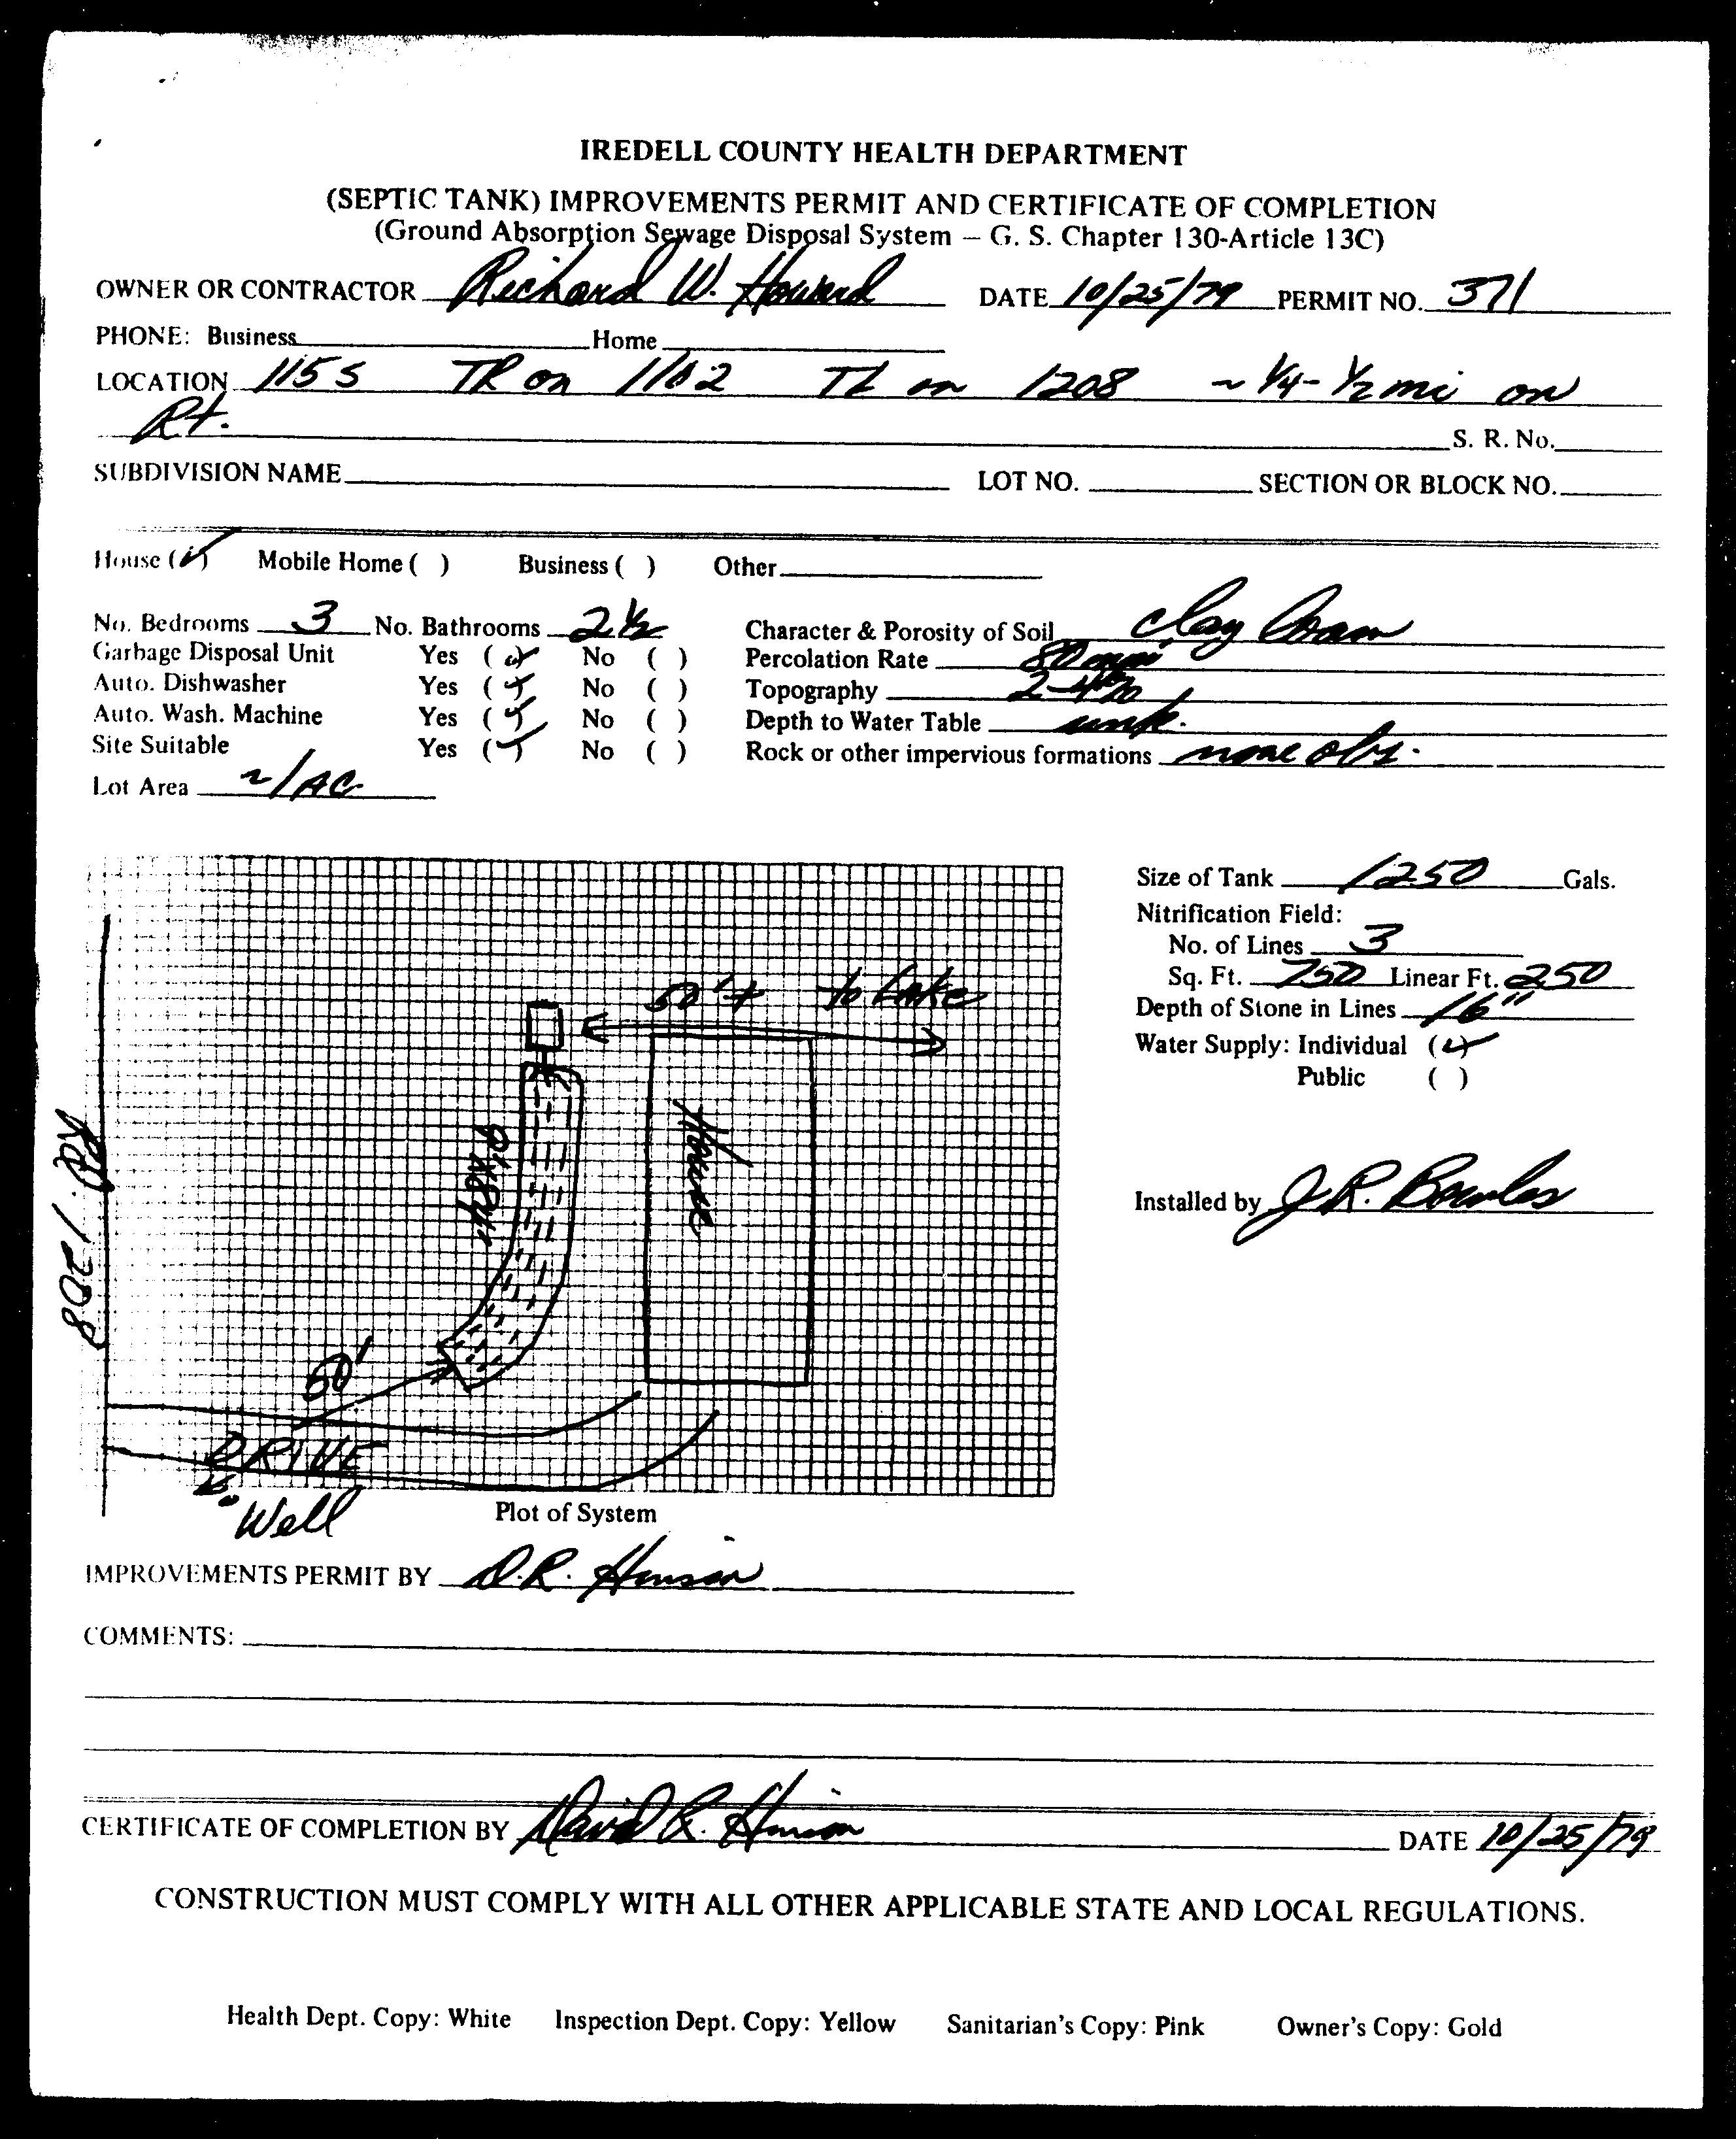 IREDELL COUNTY HEALTH DEPARTMENT
(SEPTIC TANK) IMPROVEMENTS PERMIT AND CERTIFICATE OF COMPLETION
(Ground Absorption Sewage Disposal System – G. S. Chapter 130-Article 13C)
OWNER OR CONTRACTOR Richard W. Howard DATE 10/25/79 PERMIT NO. 371
PHONE: Business Home
LOCATION 115 S TR on 1102 TL on 1208 ~ 1/4 - 1/2 mi on
Rt. S. R. No.
SUBDIVISION NAME LOT NO. SECTION OR BLOCK NO.
House (✓) Mobile Home ( ) Business ( ) Other
No. Bedrooms 3 No. Bathrooms 2 1/2 Character & Porosity of Soil Clay Loam
Garbage Disposal Unit Yes (✓) No ( ) Percolation Rate 80 mpi
Auto. Dishwasher Yes (✓) No ( ) Topography 2-4%
Auto. Wash. Machine Yes (✓) No ( ) Depth to Water Table unk.
Site Suitable Yes (✓) No ( ) Rock or other impervious formations none obs.
Lot Area ~1 AC.
Size of Tank 1250 Gals.
Nitrification Field:
No. of Lines 3
Sq. Ft. 750 Linear Ft. 250
Depth of Stone in Lines 16"
Water Supply: Individual (✓)
Public ( )
Installed by J.R. Bowles
50'+ to Lake
House
9'x84'
Rd. 1208
50'
DRIVE
Well
Plot of System
IMPROVEMENTS PERMIT BY D.R. Hinson
COMMENTS:
CERTIFICATE OF COMPLETION BY David R. Hinson DATE 10/25/79
CONSTRUCTION MUST COMPLY WITH ALL OTHER APPLICABLE STATE AND LOCAL REGULATIONS.
Health Dept. Copy: White Inspection Dept. Copy: Yellow Sanitarian's Copy: Pink Owner's Copy: Gold